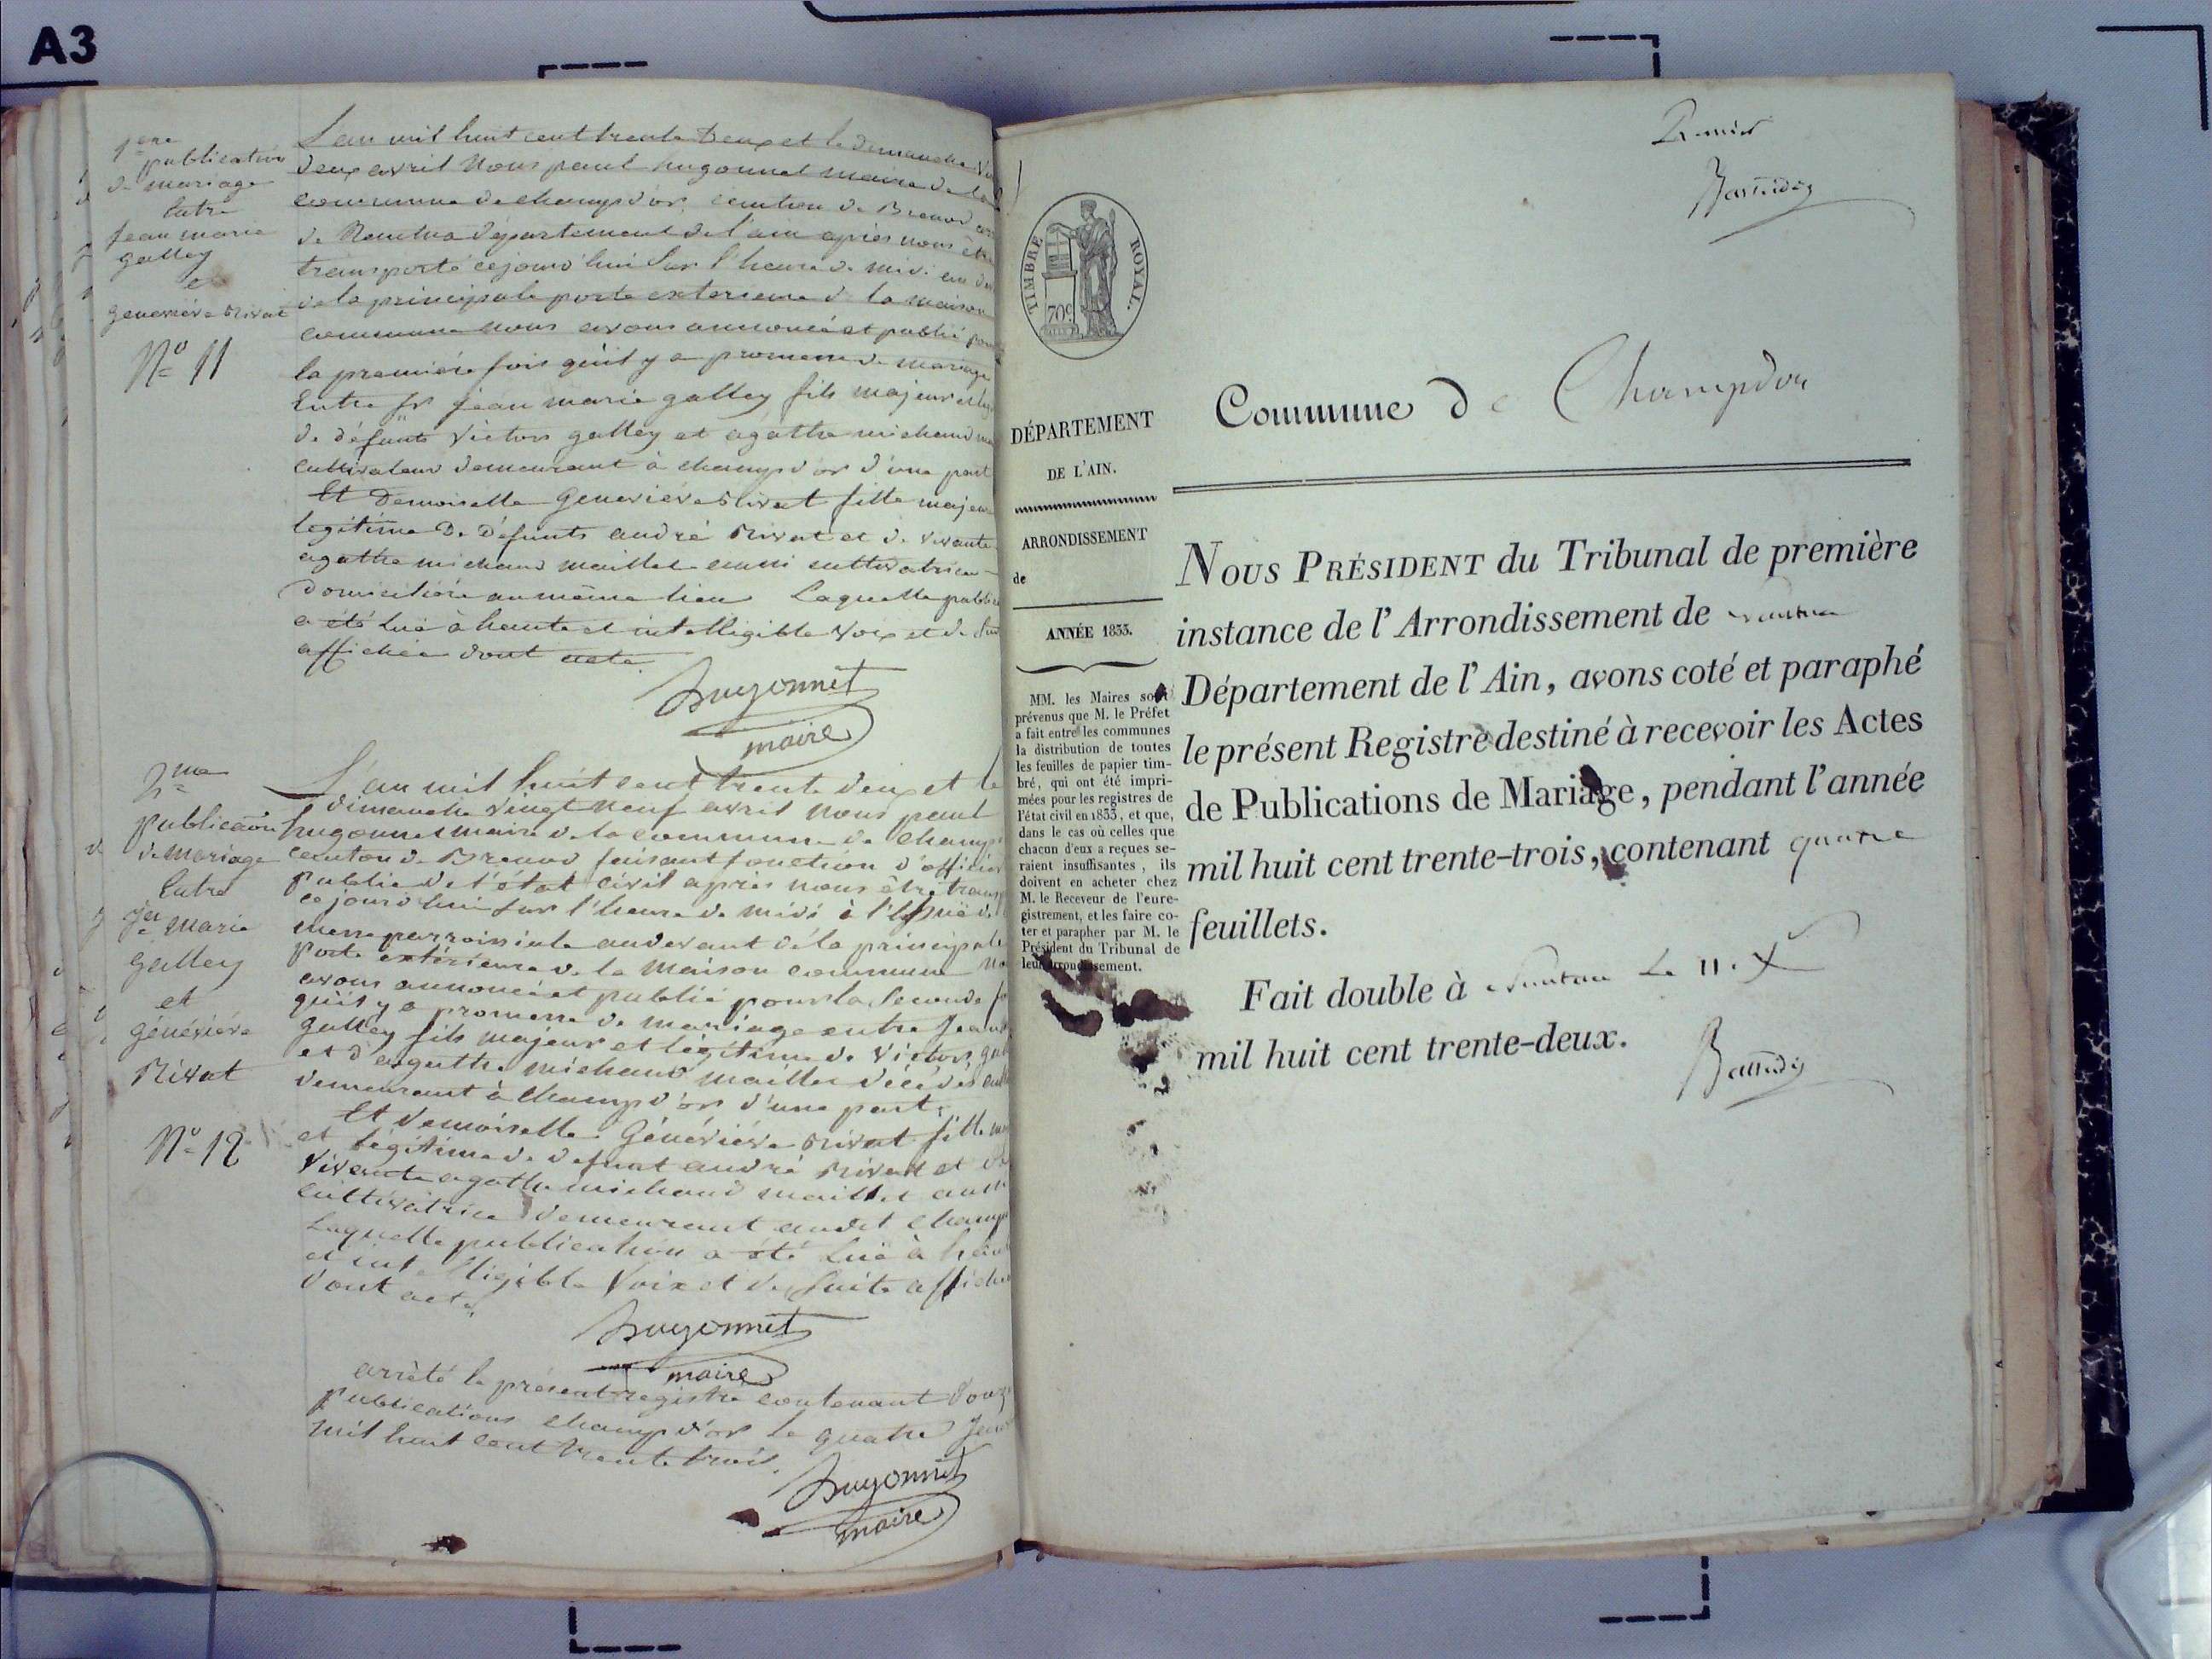 A3
1ere
publication
de mariage
Entre
Jean marie
galley
et
geneviève Rivat
Nº 11
L'an mil huit cent trente Deux et le dimanche
deux avril Nous paul hugonnet maire de la
commune de champd'or canton de Brenod
de Nantua département de l'ain après nous être
transporté cejourd'hui sur l'heure de midi au
de la principale porte exterieure de la maison
commune nous avons annoncé et publié
la première fois qu'il y a promesse de mariage
Entre Sr jean marie galley fils majeur et
de défunts victor galley et agathe michaud
cultivateur demeurant à champd'or d'une part
Et Demoiselle Geneviève Rivat fille majeure
legitime De Défunts andré Rivat et de vivante
agathe michaud maillet aussi cultivatrice
domiciliée au même lieu Laquelle
a été luë à haute et intelligible voix et de
affichée dont acte
hugonnet
maire
2me
publication
de mariage
Entre
Jn marie
galley
et
généviève
Rivat
Nº 12
L'an mil huit cent trente deux et le
dimanche vingt neuf avril nous paul
hugonnet maire de la commune de champ
canton de Brenod faisant fonction d'officier
public de l'état civil après nous être
cejourd'hui sur l'heure de midi à l'issuë de
messe parroissiale audevant déla principale
Porte extérieure de la maison commune
avons annoncé et publié pour la Seconde
qu'il y a promesse de mariage entre Jean
galley fils majeur et légitime de victor
et d'agathe michaud maillet décédés
demeurant à champd'or d'une part
Et demoiselle Généviève Rivat fille
et légitime de defunt andré Rivat et
vivante agathe michaud maillet aussi
cultivatrice demeurant audit champ
Laquelle publication a été luë à
et intelligible voix et de suite
dont acte
hugonnet
maire
arrêté le présent registre contenant
publications champd'or le quatre
mil huit cent trente trois.
hugonnet
maire
Premier
TIMBRE ROYAL.
70c
DÉPARTEMENT
DE L'AIN.
ARRONDISSEMENT
de
ANNÉE 1833.
MM. les Maires sont
prévenus que M. le Préfet
a fait entre les communes
la distribution de toutes
les feuilles de papier tim-
bré, qui ont été impri-
mées pour les registres de
l'état civil en 1833, et que,
dans le cas où celles que
chacun d'eux a reçues se-
raient insuffisantes, ils
doivent en acheter chez
M. le Receveur de l'enre-
gistrement, et les faire co-
ter et parapher par M. le
Président du Tribunal de
leur arrondissement.
Commune de Champdor
NOUS PRÉSIDENT du Tribunal de première
instance de l'Arrondissement de Nantua
Département de l'Ain, avons coté et paraphé
le présent Registre destiné à recevoir les Actes
de Publications de Mariage, pendant l'année
mil huit cent trente-trois, contenant quatre
feuillets.
Fait double à Nantua Le 11. X
mil huit cent trente-deux.